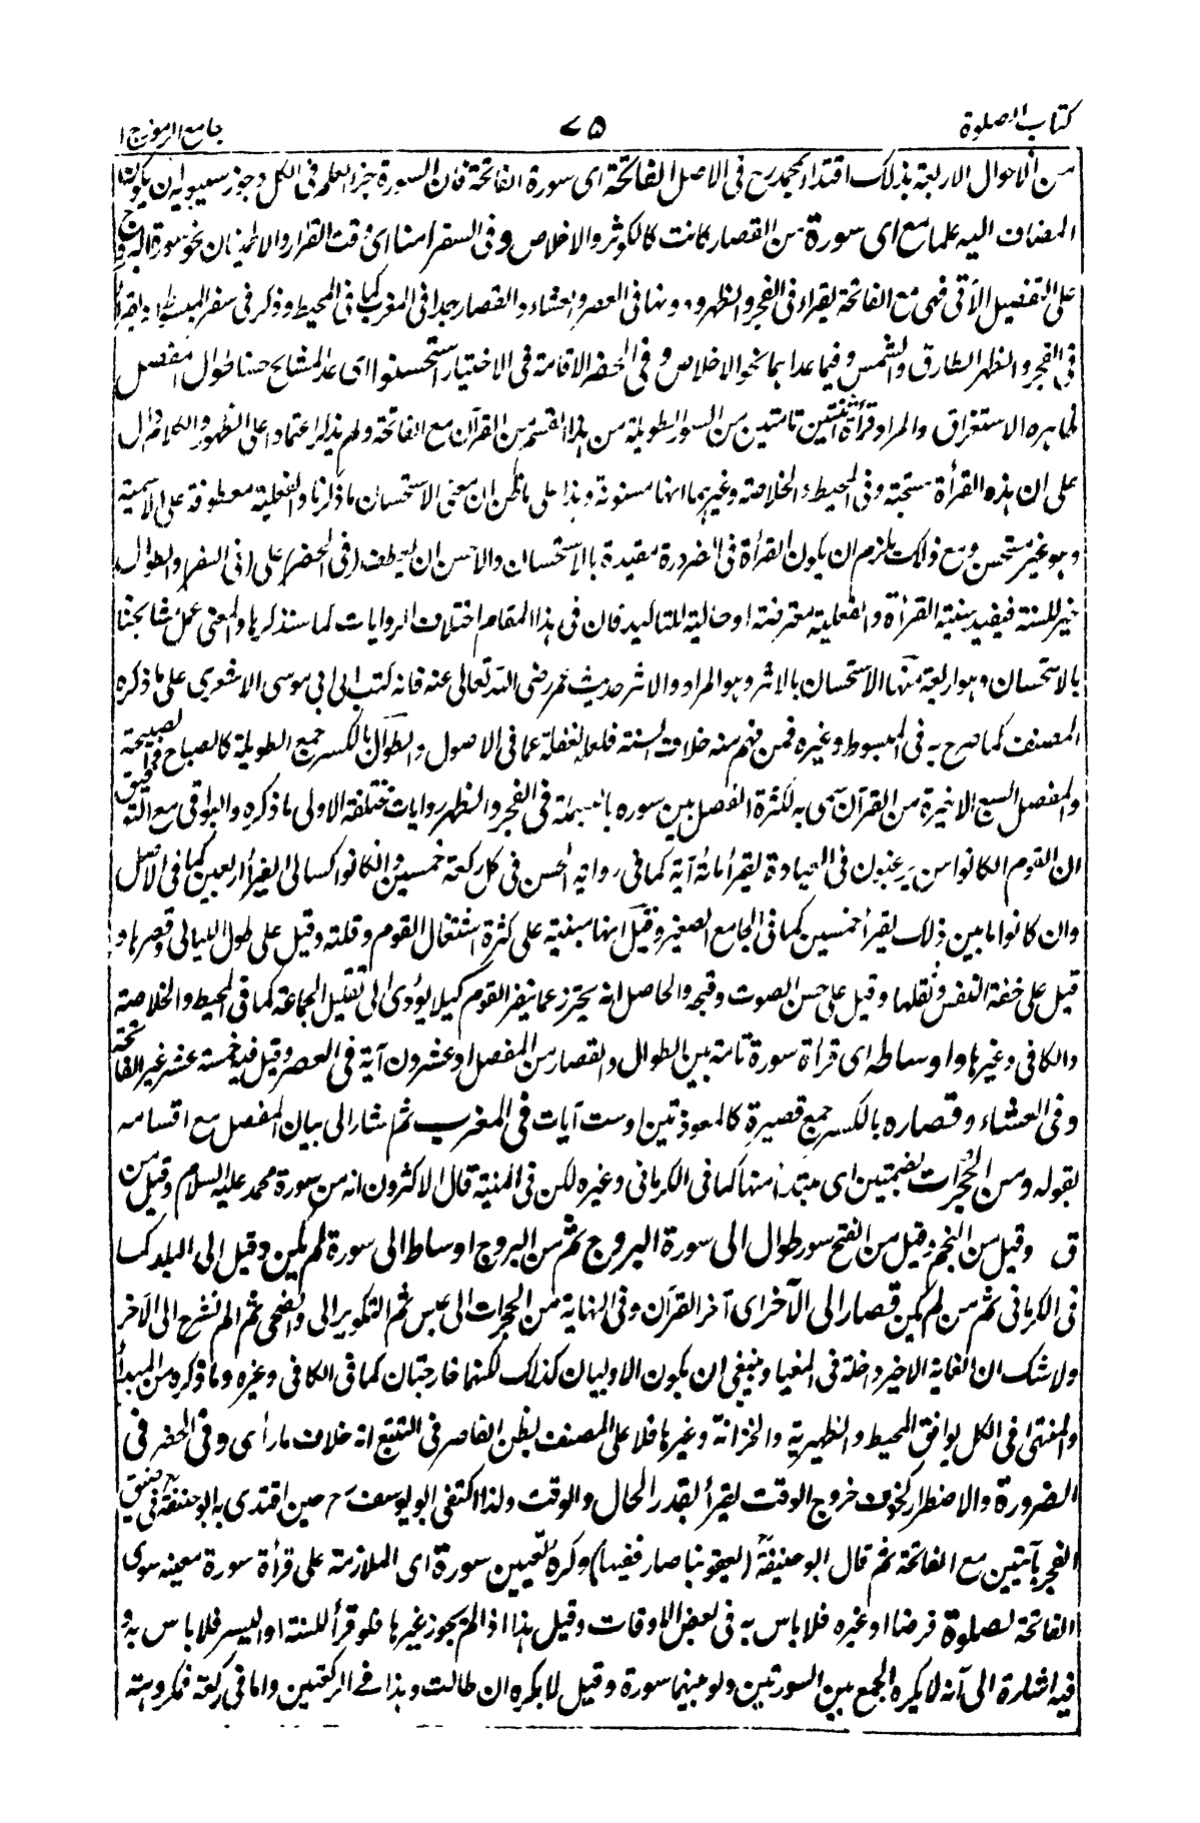 كتاب الصلوة ٧٥ جامع الرموز ج ١
من الاحوال الاربعة بذلك اقتداء بمحمد رح فى الاصل الفاتحة اى سورة الفاتحة فان السورة جزء العلم فى الكل وجوز سيبويه ان يكون
المضاف اليه علما مع اى سورة من القصار كانت كالكوثر والاخلاص وفى السفر امنا اى وقت القرار والاطمينان نحو سورة البروج
على التفصيل الآتى فهى مع الفاتحة يقراء فى الفجر والظهر ودونها فى العصر والعشاء والقصار جدا فى المغرب كما فى المحيط وذكر فى سفر المبسوط انه يقرأ
فى الفجر والظهر الطارق والشمس وفيما عداهما نحو الاخلاص وفى الحضر الاقامة فى الاختيار استحسنوا اى عد المشايخ حسنا طوال المفصل
ظاهره الاستغراق والمراد قرأة ثنتين تامتين من السور الطويلة من هذا القسم من القرآن مع الفاتحة ولم يذكر اعتمادا على الظهور والكلام دال
على ان هذه القرأة مستحبة وفى المحيط والخلاصة وغيرهما انها مسنونة وهذا على ما ظن ان معنى الاستحسان ما ذكرنا والفعلية معطوفة على الاسمية
وهو غير مستحسن ومع ذالك يلزم ان يكون القرأة فى الضرورة مقيدة بالاستحسان والاحسن ان يعطف (فى الحضر) على (فى السفر) والطوال
خبر للسنة فيفيد سنية القرأة والفعلية معترضة او حالية للتاكيد فان فى هذا المقام اختلاف الروايات كما سنذكرها والمعنى عمل مشايخنا
بالاستحسان وهو اربعة منها الاستحسان بالاثر وهو المراد والاثر حديث عمر رضى الله تعالى عنه فانه كتب الى ابى موسى الاشعرى على ما ذكره
المصنف كما صرح به فى المبسوط وغيره فمن فهم منه خلاف السنة فلعله لغفلة عما فى الاصول والطوال بالكسر جمع الطويلة كالصباح لصبيحة
والمفصل السبع الاخيرة من القرآن سمى به لكثرة الفصل بين سوره بالبسملة فى الفجر والظهر روايات مختلفة الاولى ما ذكره والبواقى مع التوفيق
ان القوم ان كانوا من يرغبون فى العبادة يقرأ مائة آية كما فى رواية الحسن فى كل ركعة خمسين وان كانوا كسالى يقرأ اربعين كما فى الاصل
وان كانوا ما بين ذلك يقرأ خمسين كما فى الجامع الصغير وقيل انها مبنية على كثرة اشتغال القوم وقلته وقيل على طول الليالى وقصرها و
قيل على خفة النفس وثقلها وقيل على حسن الصوت وقبحه والحاصل انه يحترز عما ينفر القوم كيلا يؤدى الى تقليل الجماعة كما فى المحيط والخلاصة
والكافى وغيرها واوساطه اى قراة سورة تامة بين الطوال والقصار من المفصل او عشرون آية فى العصر وقيل فيه خمسة عشر غير الفاتحة
وفى العشاء وقصاره بالكسر جمع قصيرة كالمعوذتين او ست آيات فى المغرب ثم اشار الى بيان المفصل مع اقسامه
بقوله ومن الحجرات بضمتين اى مبتدأ منها كما فى الكرمانى وغيره لكن فى المنية قال الاكثرون انه من سورة محمد عليه السلام وقيل من
ق وقيل من النجم وقيل من الفتح سور طوال الى سورة البروج ثم من البروج اوساط الى سورة لم يكن وقيل الى البلد كما
فى الكرمانى ثم من لم يكن قصار الى الآخر اى آخر القرآن وفى النهاية من الحجرات الى عبس ثم التكوير الى والضحى ثم الم نشرح الى الآخر
ولا شك ان الغاية الاخير داخلة فى المغيا وينبغى ان يكون الاوليان كذلك لكنهما خارجتان كما فى الكافى وغيره وما ذكره من المبدأ
والمنتهى فى الكل يوافق المحيط والظهيرية والخزانة وغيرها فلا على المصنف بظن القاصر فى التتبع انه خلاف ما رأى وفى الحضر فى
الضرورة والاضطرار كخوف خروج الوقت يقرأ بقدر الحال والوقت ولذا اكتفى ابو يوسف رح حين اقتدى به ابو حنيفة رح فى ضيق
الفجر بآيتين مع الفاتحة ثم قال ابو حنيفة رح (يعقوبنا صار فقيها) وكره تعيين سورة اى الملازمة على قرأة سورة معينه سوى
الفاتحة لصلوة فرضا او غيره فلا باس به فى بعض الاوقات وقيل هذا اذا لم يجوز غيرها فلو قرأ للسنة او اليسر فلا باس به و
فيه اشارة الى انه لا يكره الجمع بين السورتين ولو بينهما سورة وقيل لا يكره ان طالت وهذا فى الركعتين واما فى ركعة فمكروهة